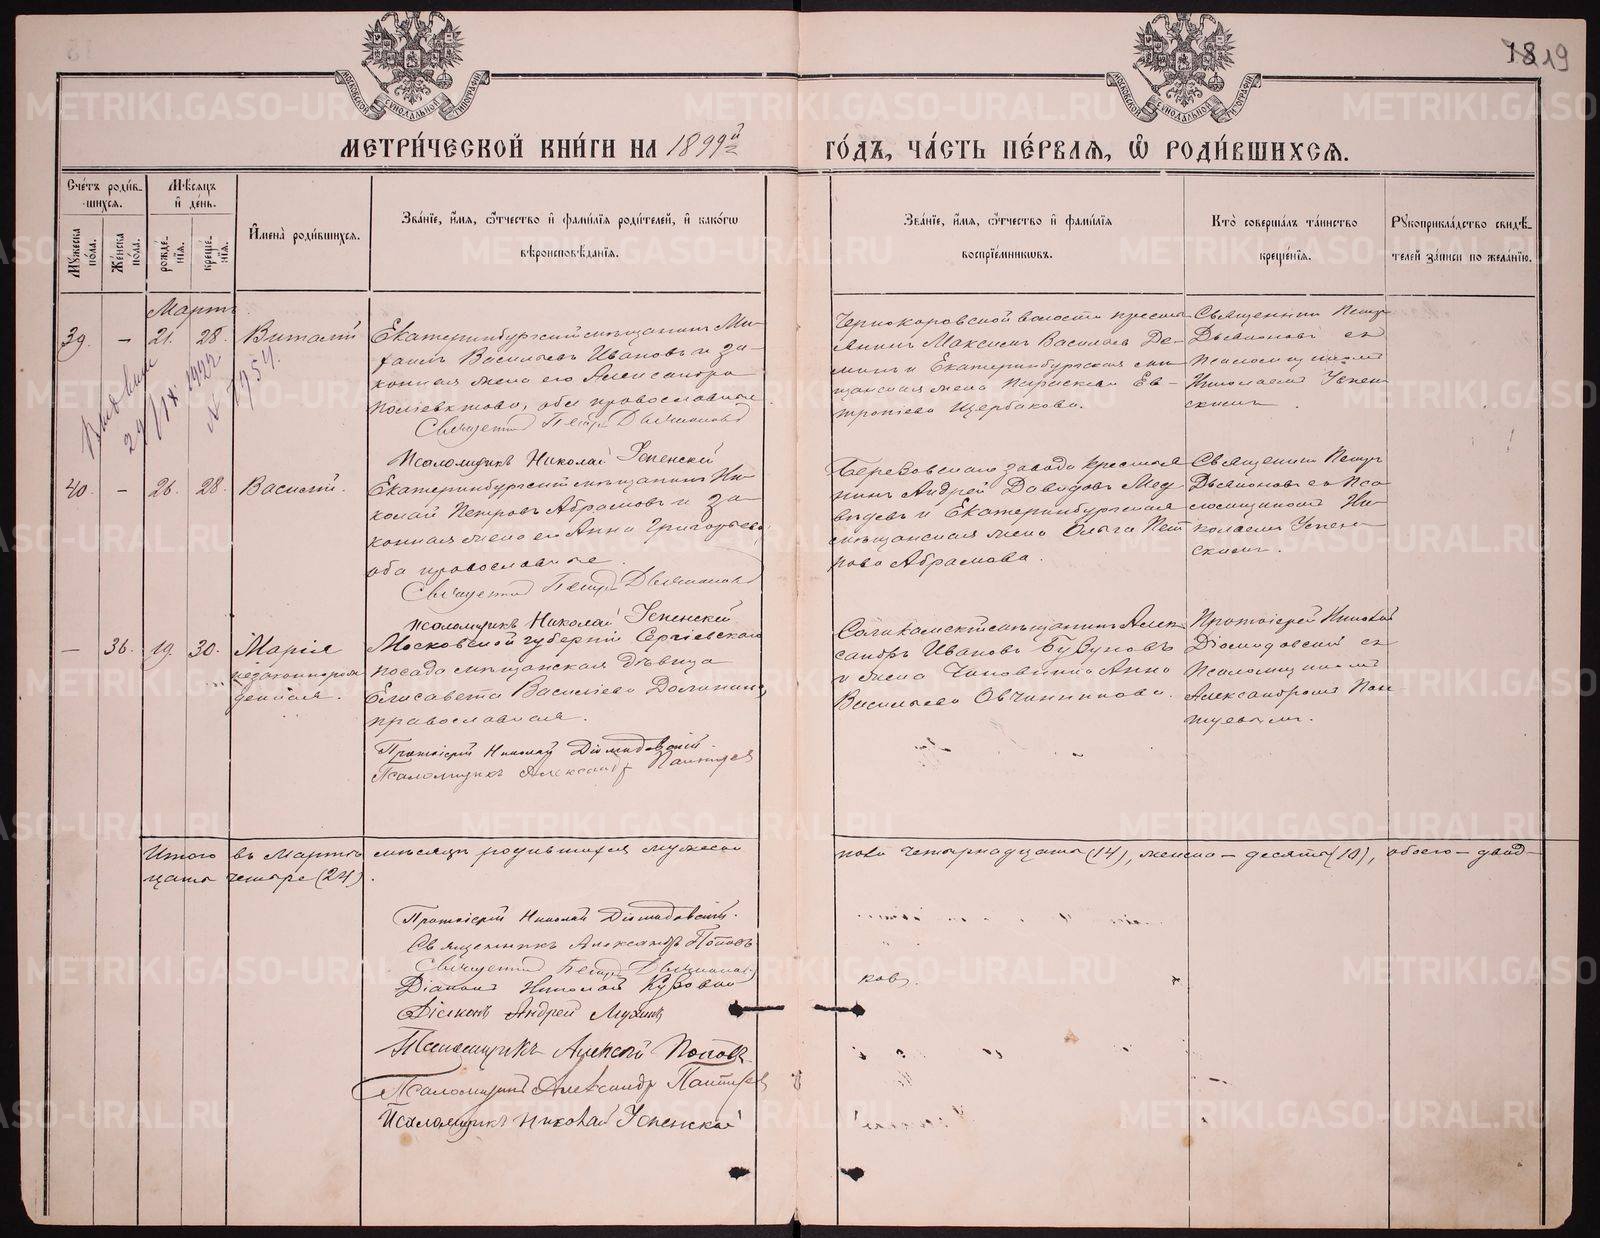 18 19
МОСКОВСКОЙ СѴНОДАЛЬНОЙ ТИПОГРАФІИ
МОСКОВСКОЙ СѴНОДАЛЬНОЙ ТИПОГРАФІИ
МЕТРИ́ЧЕСКОЙ КНИ́ГИ НА 1899й
ГО́ДЪ, ЧА́СТЬ ПЕ́РВАЯ, Ѡ РОДИ́ВШИХСЯ.
Сче́тъ роди́в-
шихся.
Му́жеска по́ла.
Же́нска по́ла.
Мѣ́сяцъ и де́нь.
рожде́-
нія.
креще́-
нія.
Имена̀ роди́вшихся.
Зва́ніе, и́мя, ѻ́тчество и фами́лія роди́телей, и како́гѡ
вѣроисповѣ́данія.
Зва́ніе, и́мя, ѻ́тчество и фами́лія
воспріе́мниковъ.
Кто̀ соверша́лъ та́инство
креще́нія.
Рукоприкла́дство свидѣ́-
телей за́писи по жела́нію.
Мартъ
39. – 21. 28. Виталій
Екатеринбургскій мѣщанинъ Ми-
Васильевъ Ивановъ и за-
конная жена его Александра
Поліевктова, оба православные.
Священникъ Петръ
Псаломщикъ Николай Успенскій
Чернокоровской волости кресть-
янинъ Максимъ Васильевъ Де-
минъ и Екатеринбургская мѣ-
щанская жена Параскева Ев-
тропіева Щербакова.
Священникъ Петръ
съ
Псаломщикомъ
Николаемъ Успен-
скимъ.
29/IX 1922
40. – 26. 28. Василій.
Екатеринбургскій мѣщанинъ Ни-
колай Петровъ Абрамовъ и за-
конная жена его Анна Григорьева,
оба православные.
Священникъ Петръ
Псаломщикъ Николай Успенскій
Березовскаго завода крестья-
нинъ Андрей Давидовъ Мед-
вѣдевъ и Екатеринбургская
мѣщанская жена Ольга Пет-
рова Абрамова.
Священникъ Петръ
съ Пса-
ломщикомъ Ни-
колаемъ Успен-
скимъ.
– 36. 19. 30. Марія
незаконнорож-
денная.
Московской губерніи Сергіевскаго
посада мѣщанская дѣвица
Елисавета Васильева Долинина,
православная.
Протоіерей Николай Діомидовскій.
Псаломщикъ Александръ Пантуевъ
Соликамскій мѣщанинъ Алек-
сандръ Ивановъ Бузуновъ
и жена Чиновника Анна
Васильева Овчинникова.
Протоіерей Николай
Діомидовскій съ
Псаломщикомъ
Александромъ Пан-
туевымъ.
Итого въ Мартѣ мѣсяцѣ родившихся мужеска
пола четырнадцать (14), женска – десять (10), обоего – двад-
цать четыре (24).
Протоіерей Николай Діомидовскій.
Священникъ Александръ Поповъ
Священникъ Петръ
Діаконъ Николай
Діаконъ Андрей
Псаломщикъ Алексѣй Поповъ
Псаломщикъ Александръ Пантуевъ
Псаломщикъ Николай Успенскій
METRIKI.GASO-URAL.RU